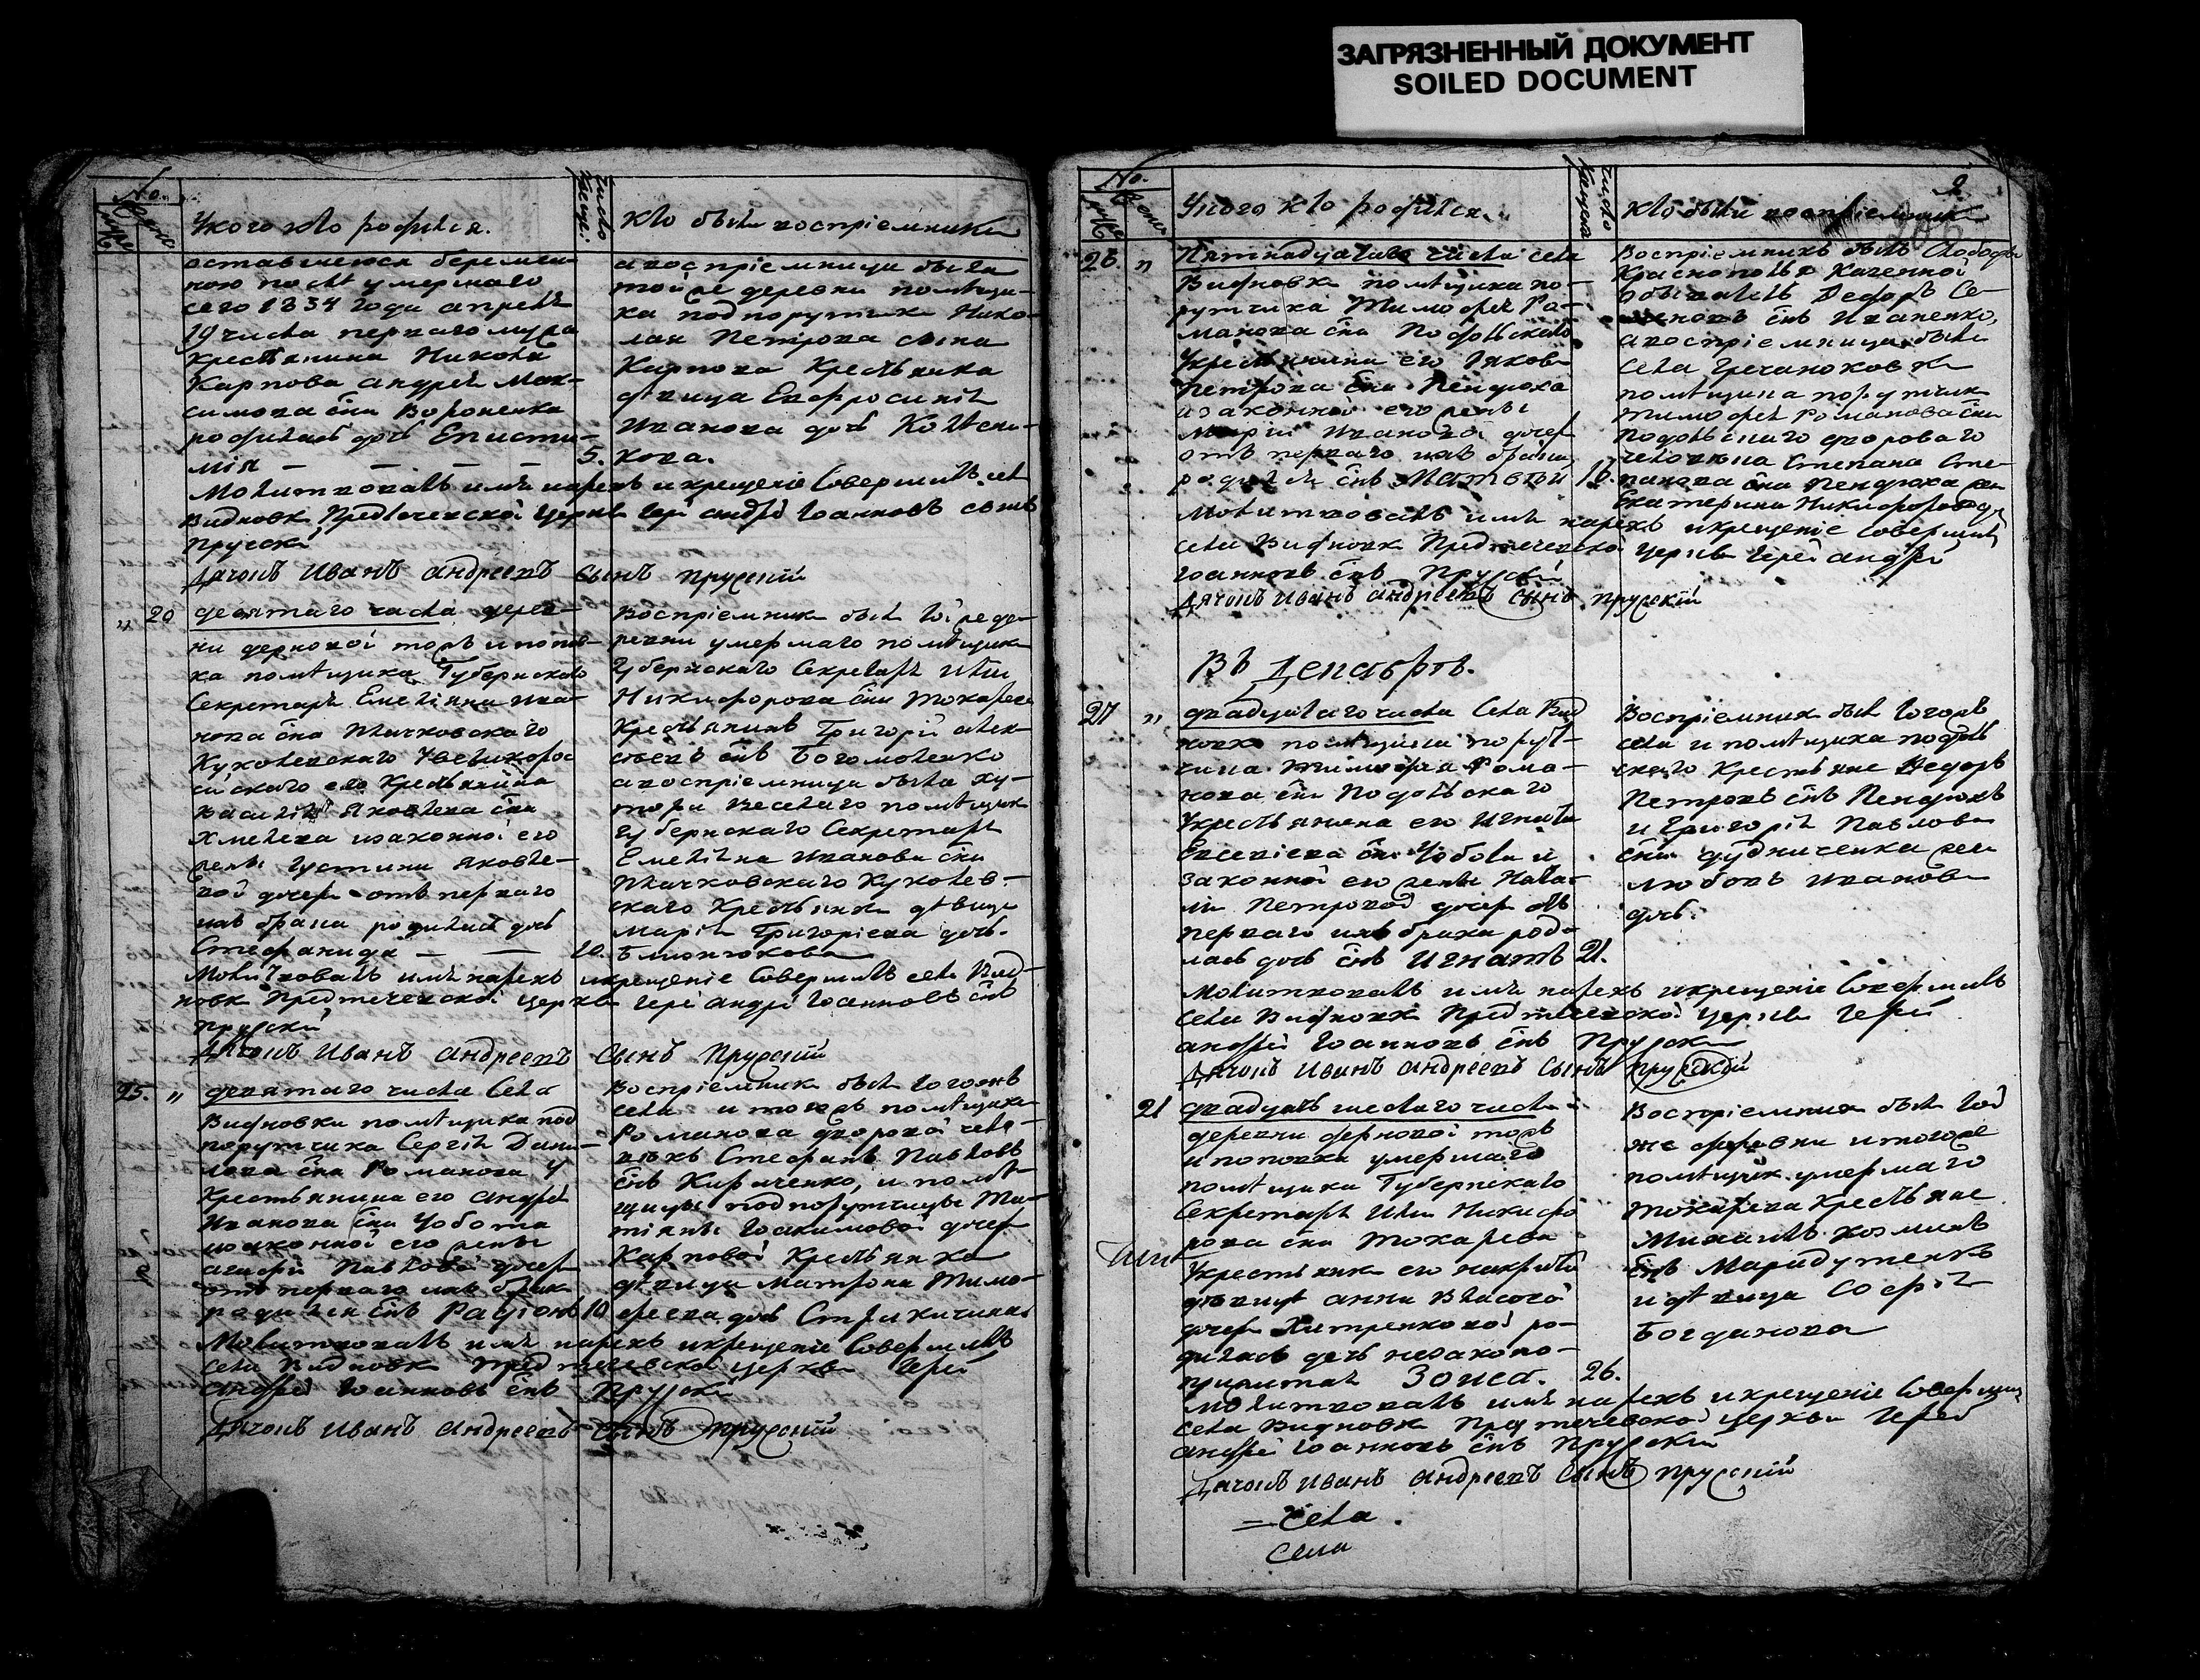 ЗАГРЯЗНЕННЫЙ ДОКУМЕНТ
SOILED DOCUMENT
No.
У кого кто родился.
Кто были воспріемники
оставшеюся беремен-
ною послѣ умершаго
сего 1834 года апрѣля
19 числа перваго мужа
Крестьянина Николая
Карпова Андрея Мак-
симова сна Вороненка
родилась дочь Еписти-
мія
5.
а воспріемница была
тойже деревни помѣщи-
ка подпорутчика Нико-
лая Петрова сына
Карпова Крестьянка
дѣвица Евфросинія
Иванова дочь
кова.
Молитвовалъ имя нарекъ и крещеніе Совершилъ села
Видновки Предтечевской Церкви Іерей Андрей Іоанновъ сынъ
Прускій
Дячокъ Иванъ Андреевъ Сынъ Прускій
" 20
десятаго числа дерев-
ни дерновой тожъ и попов-
ка помѣщика Губернскаго
Секретаря Емеліяна Ива-
нова сна Плачковскаго
Василія Яковлева сна
Хмелева изаконной его
жены Густины Яковле-
вой дочери отъ перваго
ихъ брака родилась дочь
Стефанида
20.
Воспріемникъ былъ тойже де-
ревни умершаго помѣщика
Губернскаго Секретаря Иліи
Никифорова сна Токарева
Крестьянинъ Григорій Алек-
сѣевъ снъ Богомоленко
а воспріемница была ху-
тора Веселаго помѣщика
Губернскаго Секретаря
Емеліяна Иванова сна
Плачковскаго Куколев-
скаго Крестьянка дѣвица
Марія Григоріева дочь
Молитвовалъ имя нарекъ и крещеніе Совершилъ села Вид-
новки Предтечевской церкви Іерей Андрей Іоанновъ снъ
Прускій
Дячокъ Иванъ Андреевъ Сынъ Прускій
25. "
девятаго числа Села
Видновки помѣщика под
порутчика Сергія Дани-
лова сна Романова у
Крестьянина его Андрея
Иванова сна Чобота
изаконной его жены
Агафіи Павловой дочери
отъ перваго ихъ брака
родился снъ Радіонъ
10
Воспріемникъ былъ тогожъ
села и тогожъ помѣщика
Романова дворовой чело-
вѣкъ Стефанъ Павловъ
снъ Кириченко, и помѣ-
щицы подпорутчицы Та-
тіяны Іоакимовой дочери
Карповой Крестьянка
дѣвица Матрона Тимо-
феева дочь
Молитвовалъ имя нарекъ и крещеніе Совершилъ
села Видновки Предтечевской церкви Іерей
Андрей Іоанновъ снъ Прускій
Дячокъ Иванъ Андреевъ Сынъ Прускій
No.
У кого кто родился.
Кто были воспріемники
26. "
Пятнадцатаго числа села
Видновки помѣщика по-
рутчика Тимофея Ро-
манова сна Подольскаго
Укрестьянина его Іякова
Петрова сна Пендюха
изаконной его жены
Маріи Ивановой дочери
отъ перваго ихъ брака
родился снъ Матвѣй
16.
Воспріемникъ былъ Слободы
Краснополья Казенной
обыватель Федоръ Се-
меновъ снъ Иваненко,
а воспріемница была
села Гречановки
помѣщика порутчика
Тимофея Романова сна
Подольскаго двороваго
человѣка Степана Сте-
панова сна Пендюха жена
Екатерина Никифорова до
Молитвовалъ имя нарекъ и крещеніе Совершилъ
села Видновки Предтечевской церкви Іерей Андрей
Іоанновъ снъ Прускій
Дячокъ Иванъ Андреевъ Сынъ Прускій
Въ Декабрѣ.
27 "
двадцатаго числа Села Вид
новки помѣщика порут-
чика Тимофея Рома-
нова сна Подольскаго
Укрестьянина его Игната
Евсевіева сна Чобота и
законной его жены Ната-
ліи Петровой дочери отъ
перваго ихъ брака роди-
лась дочь снъ Игнатъ
21.
Воспріемник былъ тогожъ
села и помѣщика Подоль
скаго Крестьяне Федоръ
Петровъ снъ Пендюхъ
и Григорія Павлова
сна Дудниченка жена
Любовь Иванова
дочь.
Молитвовалъ имя нарекъ и крещеніе Совершилъ
села Видновки Предтечевской церкви Іерей
Андрей Іоанновъ снъ Прускій
Дячокъ Иванъ Андреевъ Сынъ Прускій
21
двадцать шестаго числа
деревни дерновой тожъ
и поповка умершаго
помѣщика Губернскаго
Секретаря Иліи Никифо
рова сна Токарева
Укрестьянки его накрытки
дѣвицы Анны Власовой
дочери Хитренковой ро-
дилась дочь незаконо-
прижитая Зоиса.
26.
Воспріемники были той
же деревни и тогоже
помѣщик умершаго
Токарева Крестьяне
Михаилъ Козминъ
снъ
и дѣвица Софія
Богданова
Молитвовалъ имя нарекъ и крещеніе Совершилъ
села Видновки Предтечевской церкви Іерей
Андрей Іоанновъ снъ Прускій
Дячокъ Иванъ Андреевъ Сынъ Прускій
Села
Села